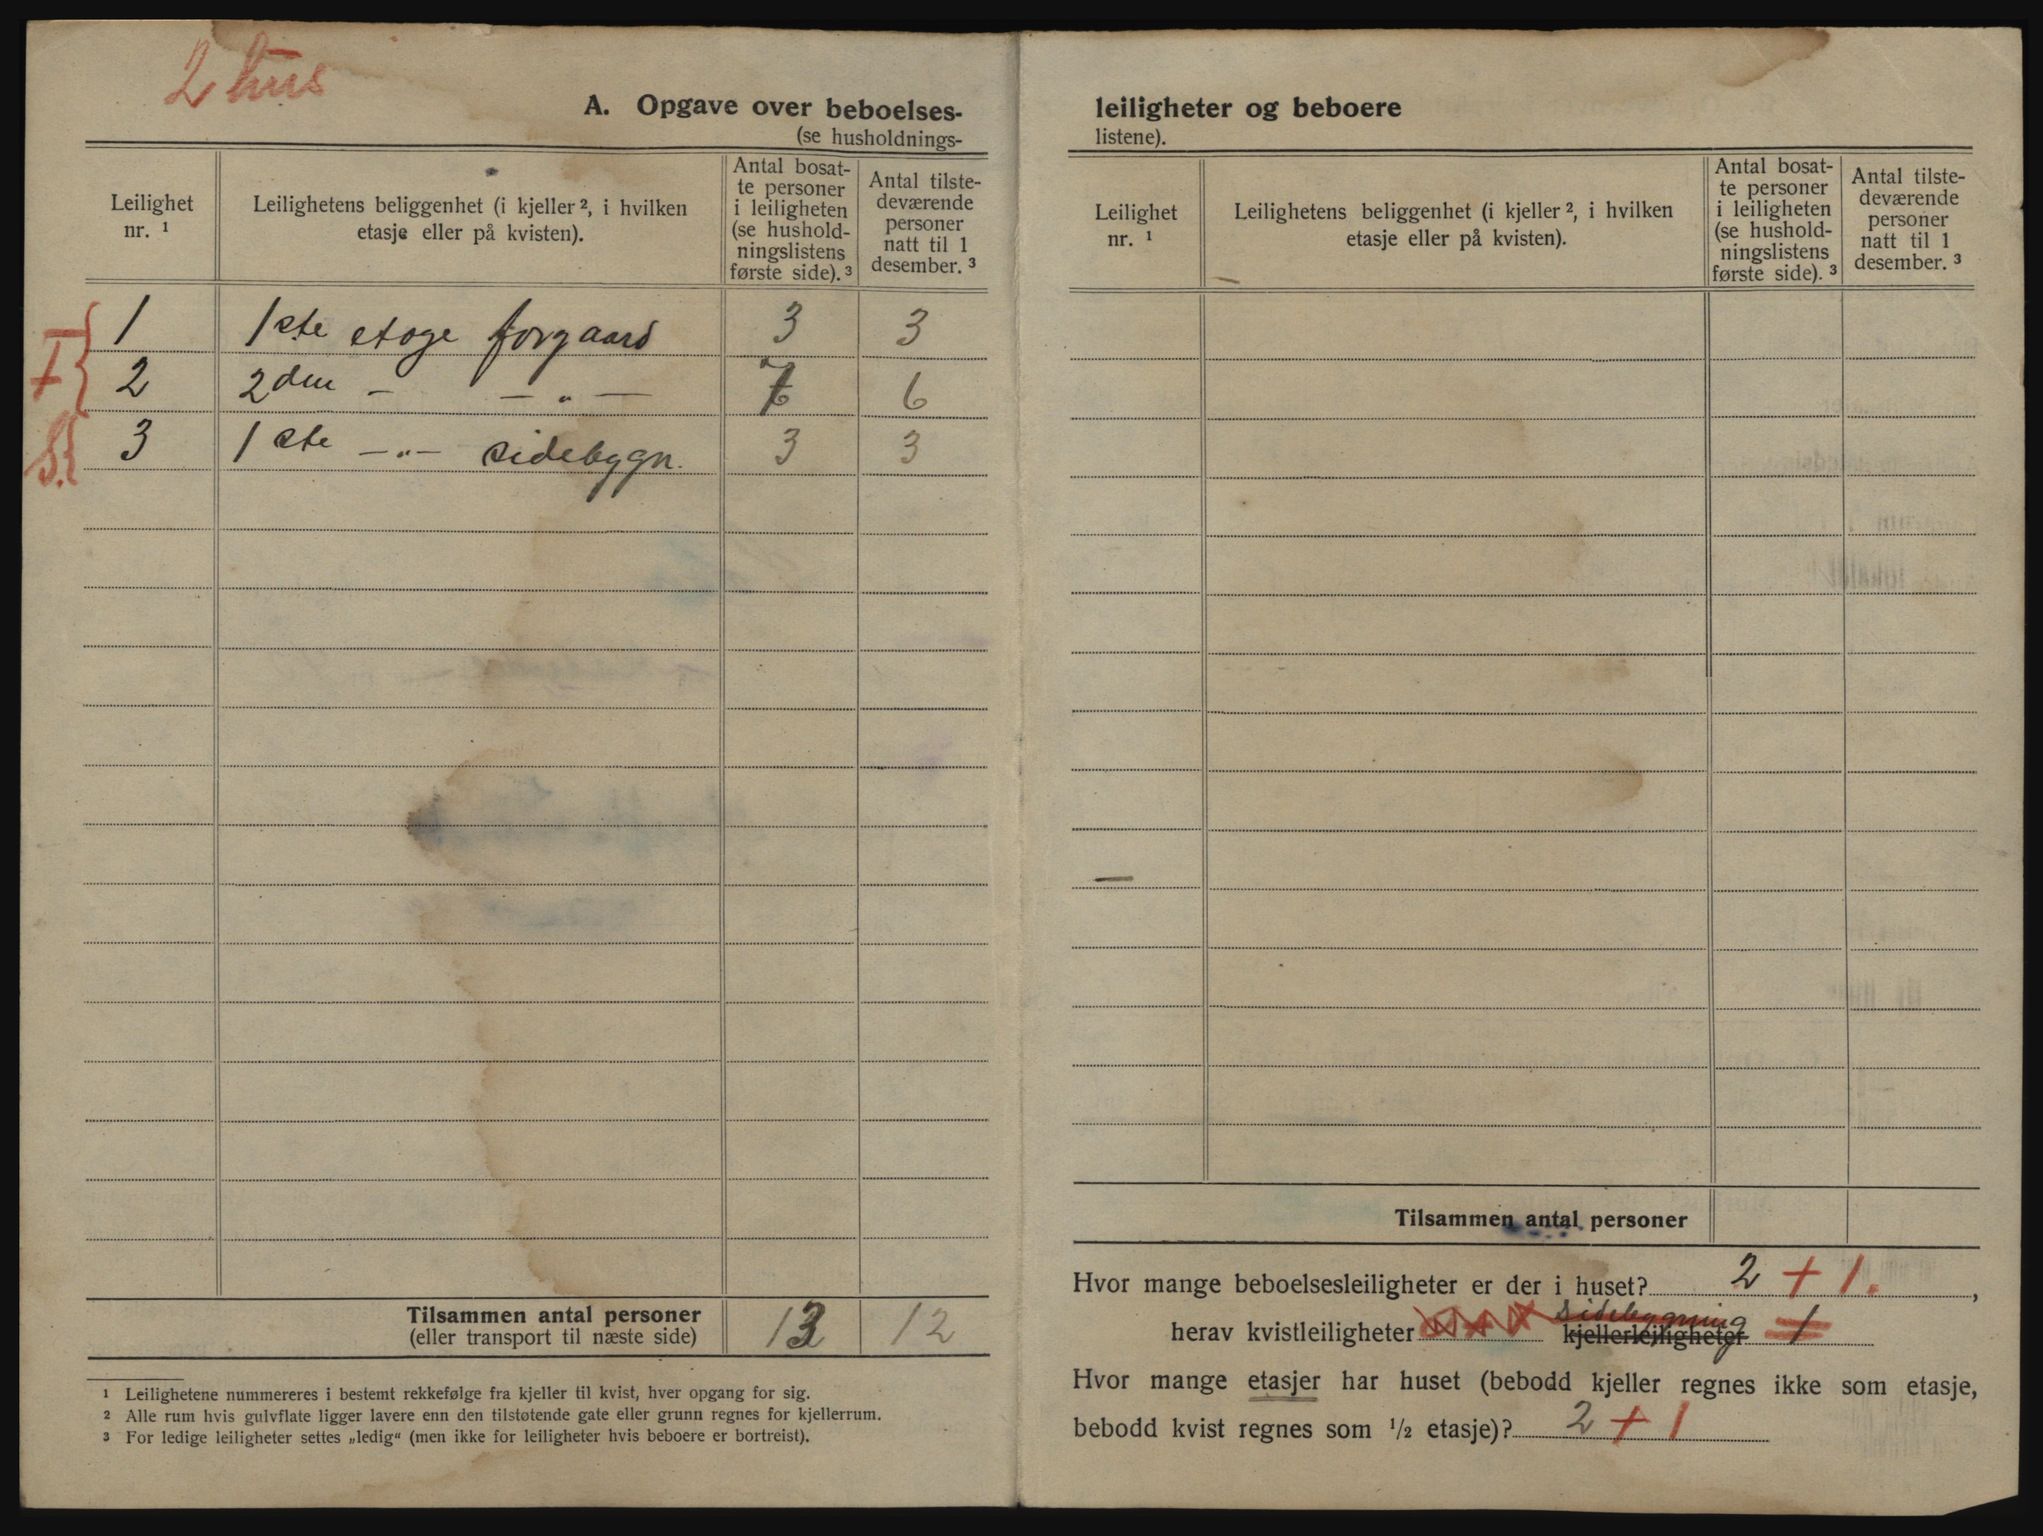 2 hus
A. Opgave over beboelses-
(se husholdnings-
Leilighet nr. ¹
Leilighetens beliggenhet (i kjeller ², i hvilken etasje eller på kvisten).
Antal bosat-
te personer
i leiligheten
(se hushold-
ningslistens
første side). ³
Antal tilste-
deværende
personer
natt til 1
desember. ³
I { 1 1ste etage forgaard 3 3
2 2den — — „ — 6
S. { 3 1ste — „ — sidebygn. 3 3
Tilsammen antal personer
(eller transport til næste side) 13 12
¹ Leilighetene nummereres i bestemt rekkefølge fra kjeller til kvist, hver opgang for sig.
² Alle rum hvis gulvflate ligger lavere enn den tilstøtende gate eller grunn regnes for kjellerrum.
³ For ledige leiligheter settes „ledig“ (men ikke for leiligheter hvis beboere er bortreist).
leiligheter og beboere
listene).
Leilighet nr. ¹
Leilighetens beliggenhet (i kjeller ², i hvilken etasje eller på kvisten).
Antal bosat-
te personer
i leiligheten
(se hushold-
ningslistens
første side). ³
Antal tilste-
deværende
personer
natt til 1
desember. ³
Tilsammen antal personer
Hvor mange beboelsesleiligheter er der i huset? 2 + 1. ,
sidebygning
herav kvistleiligheter kjellerleiligheter 1
Hvor mange etasjer har huset (bebodd kjeller regnes ikke som etasje,
bebodd kvist regnes som ½ etasje)? 2 + 1